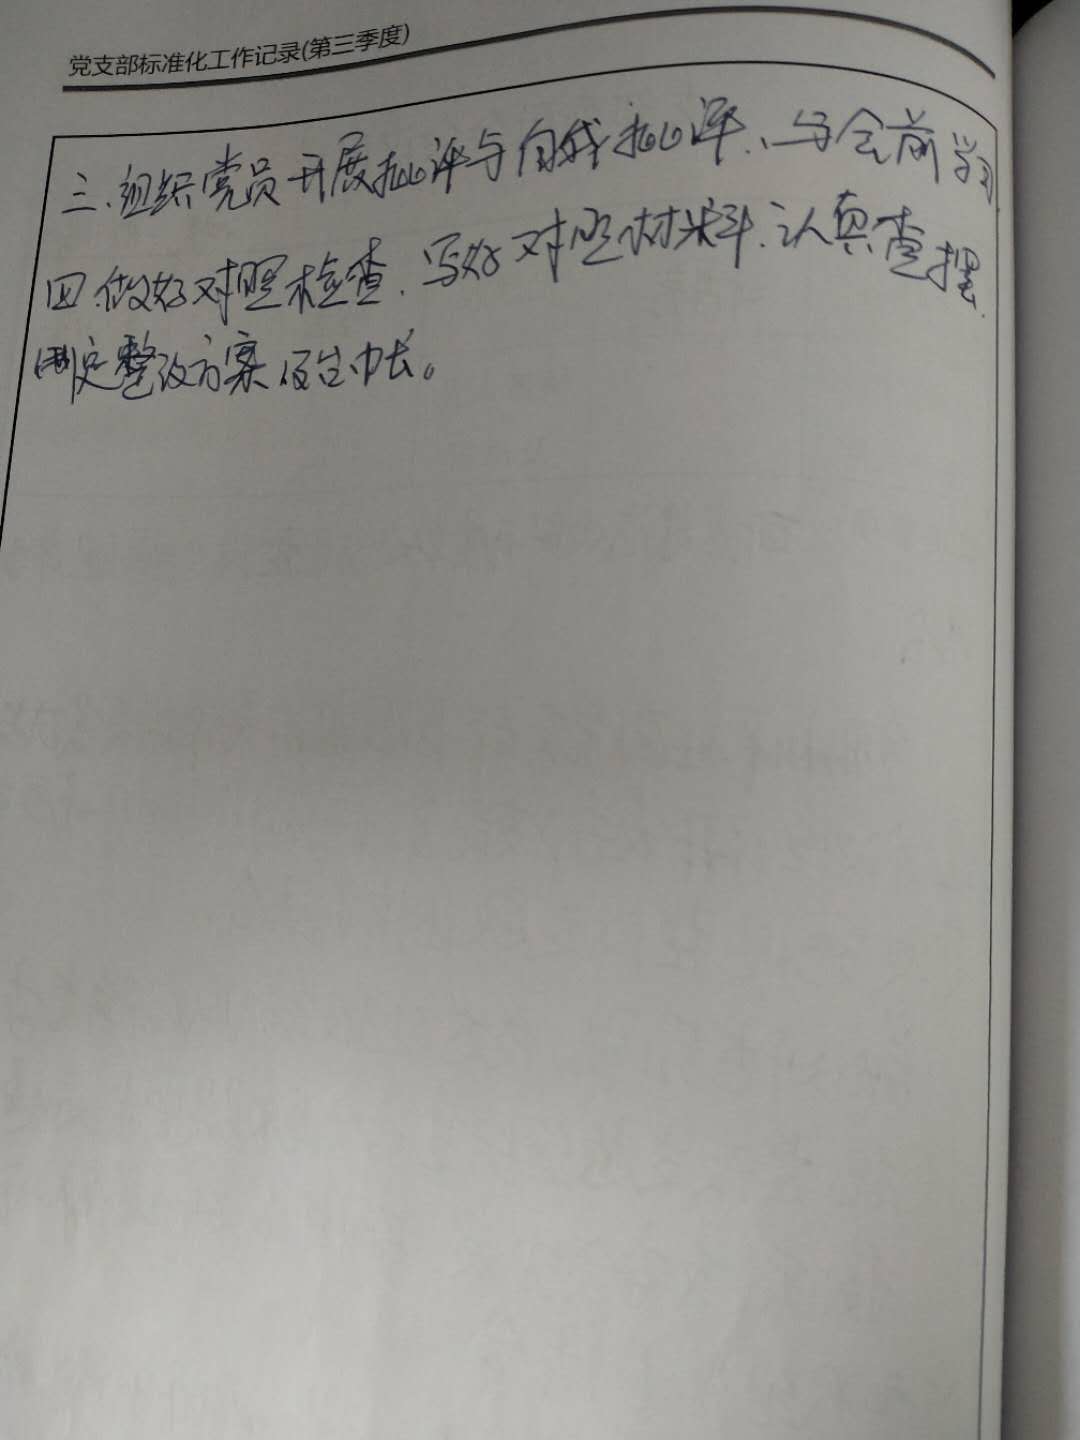 党支部标准化工作记录(第三季度)
三、组织党员开展批评与自我批评、与会前学习
四 做好对照检查、写好对照材料、认真查摆、
制定整改方案 台帐。